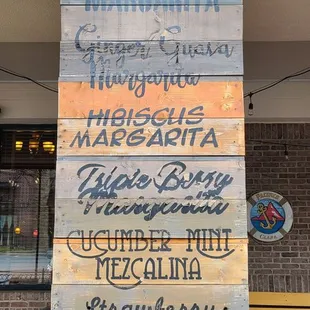 MARGARITA
Ginger Guava
Margarita
HIBISCUS
MARGARITA
Triple Berry
Margarita
CUCUMBER MINT
MEZCALINA
Strawberry